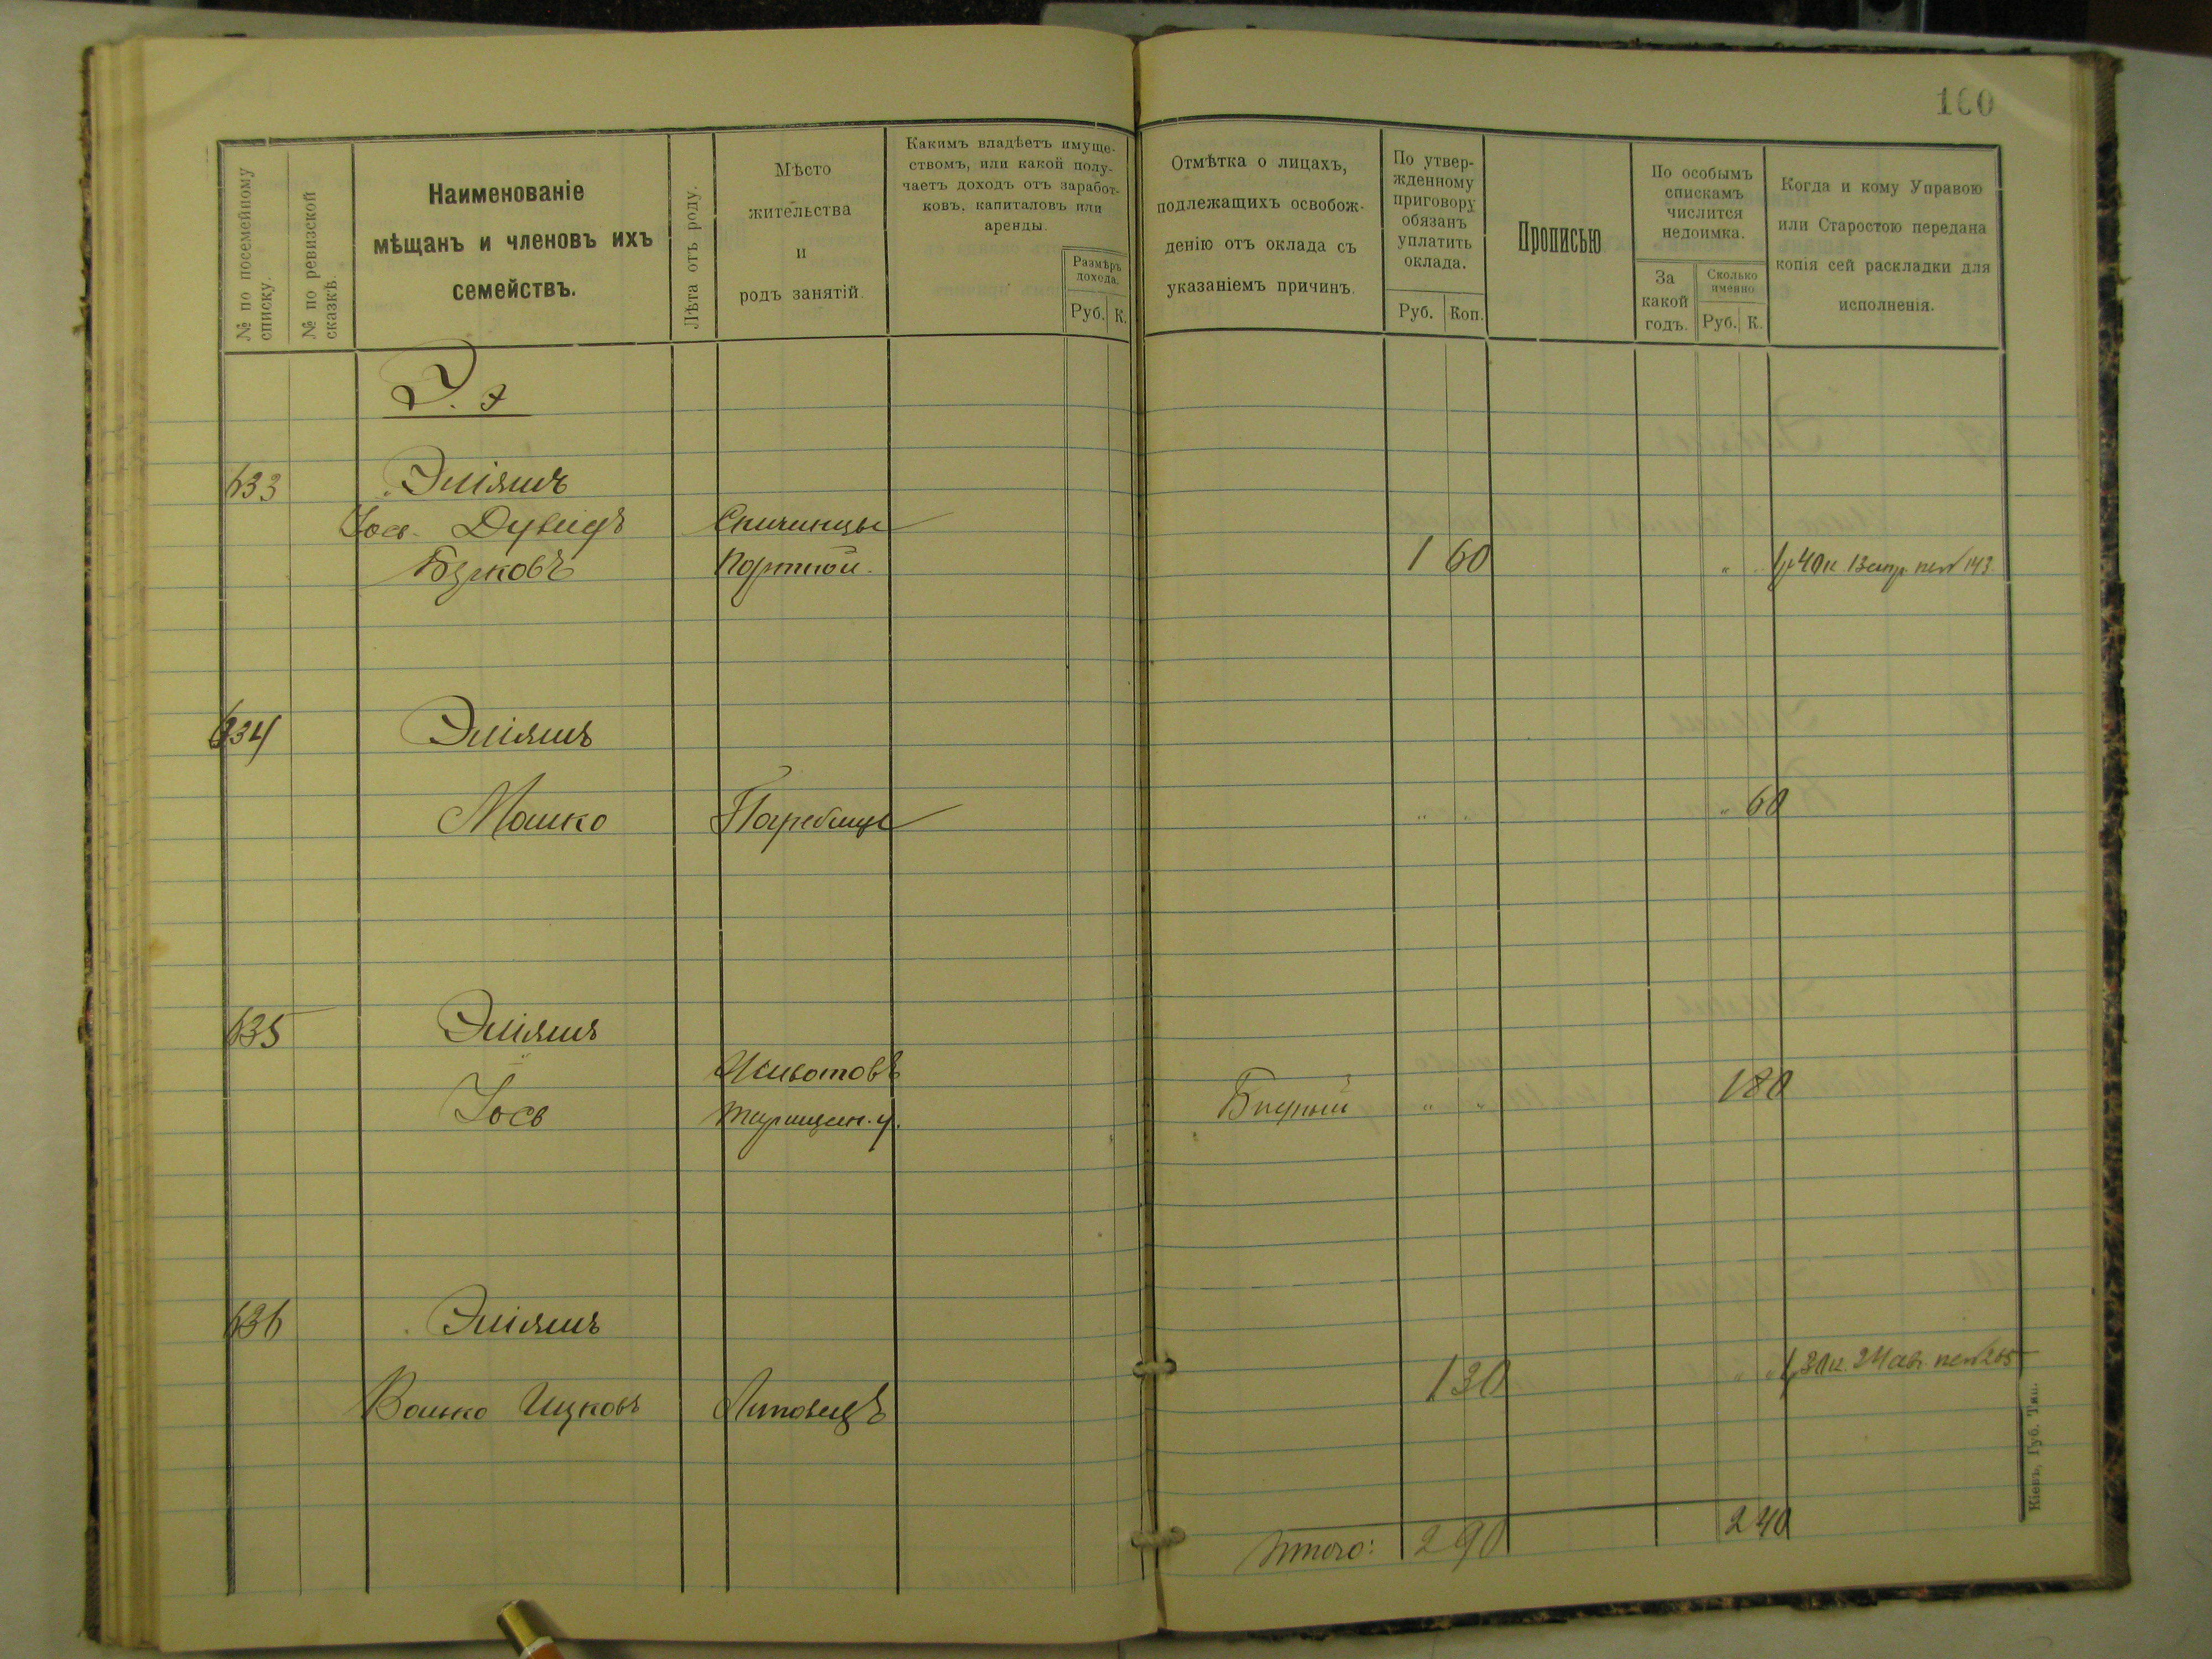 160
№ по посемейному списку.
№ по ревизской сказкѣ.
Наименованіе
мѣщанъ и членовъ ихъ
семействъ.
Лѣта отъ роду.
Мѣсто
жительства
и
родъ занятій.
Какимъ владѣетъ имуще-
ствомъ, или какой полу-
чаетъ доходъ отъ заработ-
ковъ, капиталовъ или
аренды.
Размѣръ
дохода.
Руб. К.
Отмѣтка о лицахъ,
подлежащихъ освобож-
денію отъ оклада съ
указаніемъ причинъ.
По утвер-
жденному
приговору
обязанъ
уплатить
оклада.
Руб. Коп.
Прописью
По особымъ
спискамъ
числится
недоимка.
За
какой
годъ.
Сколько
именно
Руб. К.
Когда и кому Управою
или Старостою передана
копія сей раскладки для
исполненія.
Э. э
633 Эліяшъ
Іось-Дувидъ Спичинцы
Берковъ Портной. 1 60 " 1р 40к. 13 апр. 143.
634 Эліяшъ
Мошко Погребище " " " 60
635 Эліяшъ
Животовъ
Іось Таращан. у. Бидный " " 1 80
636 Эліяшъ
Волько Ицковъ Литовецъ 1 30 " " 1р 30к. 24 ав. 265
Итого: 2 90 2 40
Кіевъ, Губ. Тип.